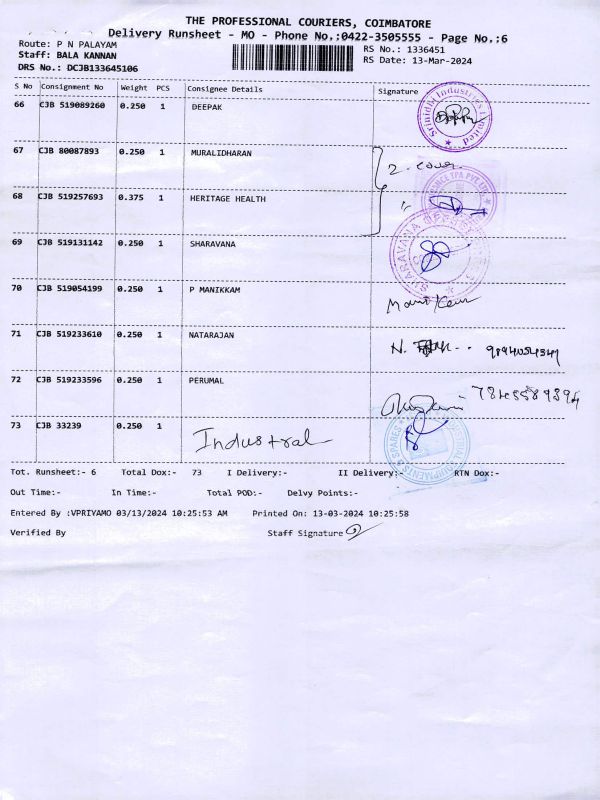 THE PROFESSIONAL COURIERS, COIMBATORE
Delivery Runsheet - MO - Phone No.:0422-3505555 - Page No.:6
Route: P N PALAYAM
Staff: BALA KANNAN
DRS No.: DCJB133645106
RS No.: 1336451
RS Date: 13-Mar-2024
S No Consignment No Weight PCS Consignee Details Signature
66 CJB 519089260 0.250 1 DEEPAK
Srinidhi Industries Limited
67 CJB 80087893 0.250 1 MURALIDHARAN
2. cover
68 CJB 519257693 0.375 1 HERITAGE HEALTH
TPA PVT LTD
69 CJB 519131142 0.250 1 SHARAVANA
SHARAVANA
70 CJB 519054199 0.250 1 P MANIKKAM
71 CJB 519233610 0.250 1 NATARAJAN
N.
72 CJB 519233596 0.250 1 PERUMAL
7845589394
73 CJB 33239 0.250 1 Industral
EQUIPMENTS & SPARES
Tot. Runsheet:- 6 Total Dox:- 73 I Delivery:- II Delivery:- RTN Dox:-
Out Time:- In Time:- Total POD:- Delvy Points:-
Entered By :VPRIYAMO 03/13/2024 10:25:53 AM Printed On: 13-03-2024 10:25:58
Verified By Staff Signature